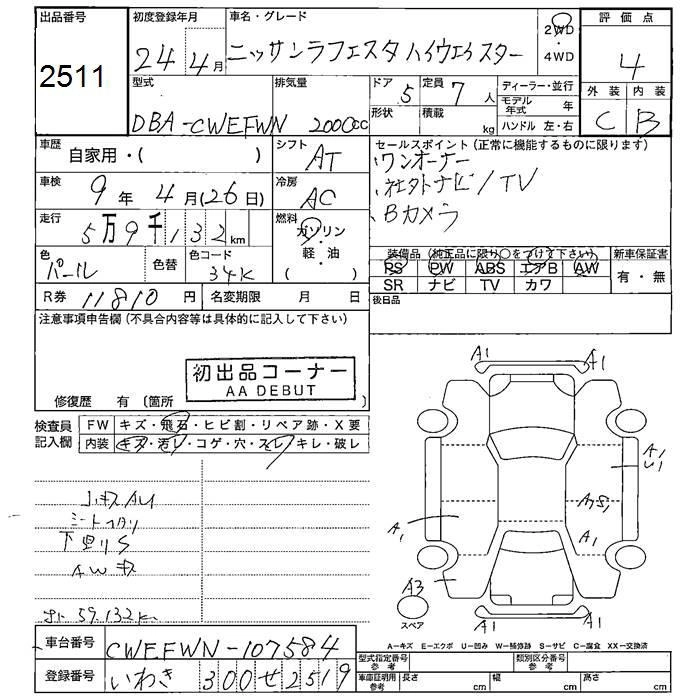 出品番号 初度登録年月 車名・グレード 評価点
2511
24年4月 ニッサンラフェスタ ハイウエイスター 2WD・4WD 4
型式 排気量 ドア 定員 ディーラー・並行 外装 内装
DBA-CWEFWN 2000cc 5 7人 モデル年式 年 C B
形状 積載 kg ハンドル 左・右
車歴 シフト セールスポイント(正常に機能するものに限ります)
自家用・( ) AT ワンオーナー
車検 冷房 社外ナビ/TV
9年4月(26日) AC Bカメラ
走行 燃料
5万9千132km ガソリン・軽・油( )
色 色替 色コード 装備品(純正品に限り○をつけて下さい) 新車保証書
パール 34K PS PW ABS エアB AW 有・無
SR ナビ TV カワ
R券 11810円 名変期限 月 日 後日品
注意事項申告欄(不具合内容等は具体的に記入して下さい)
初出品コーナー
AA DEBUT
修復歴 有〔箇所 〕
検査員記入欄 FW キズ・飛石・ヒビ割・リペア跡・X要
内装 キズ・汚レ・コゲ・穴・スレ・キレ・破レ
下廻りS
AWキズ
59.132K
A1 A1
A1
U1
A1
A1
A3
スペア
A1 A1
A-キズ E-エクボ U-凹み W-補修跡 S-サビ C-腐食 XX-交換済
車台番号 CWEFWN-107584
型式指定番号 参考 類別区分番号 参考
登録番号 いわき 300 せ 2519
車庫証明用 参考 長さ cm 幅 cm 高さ cm